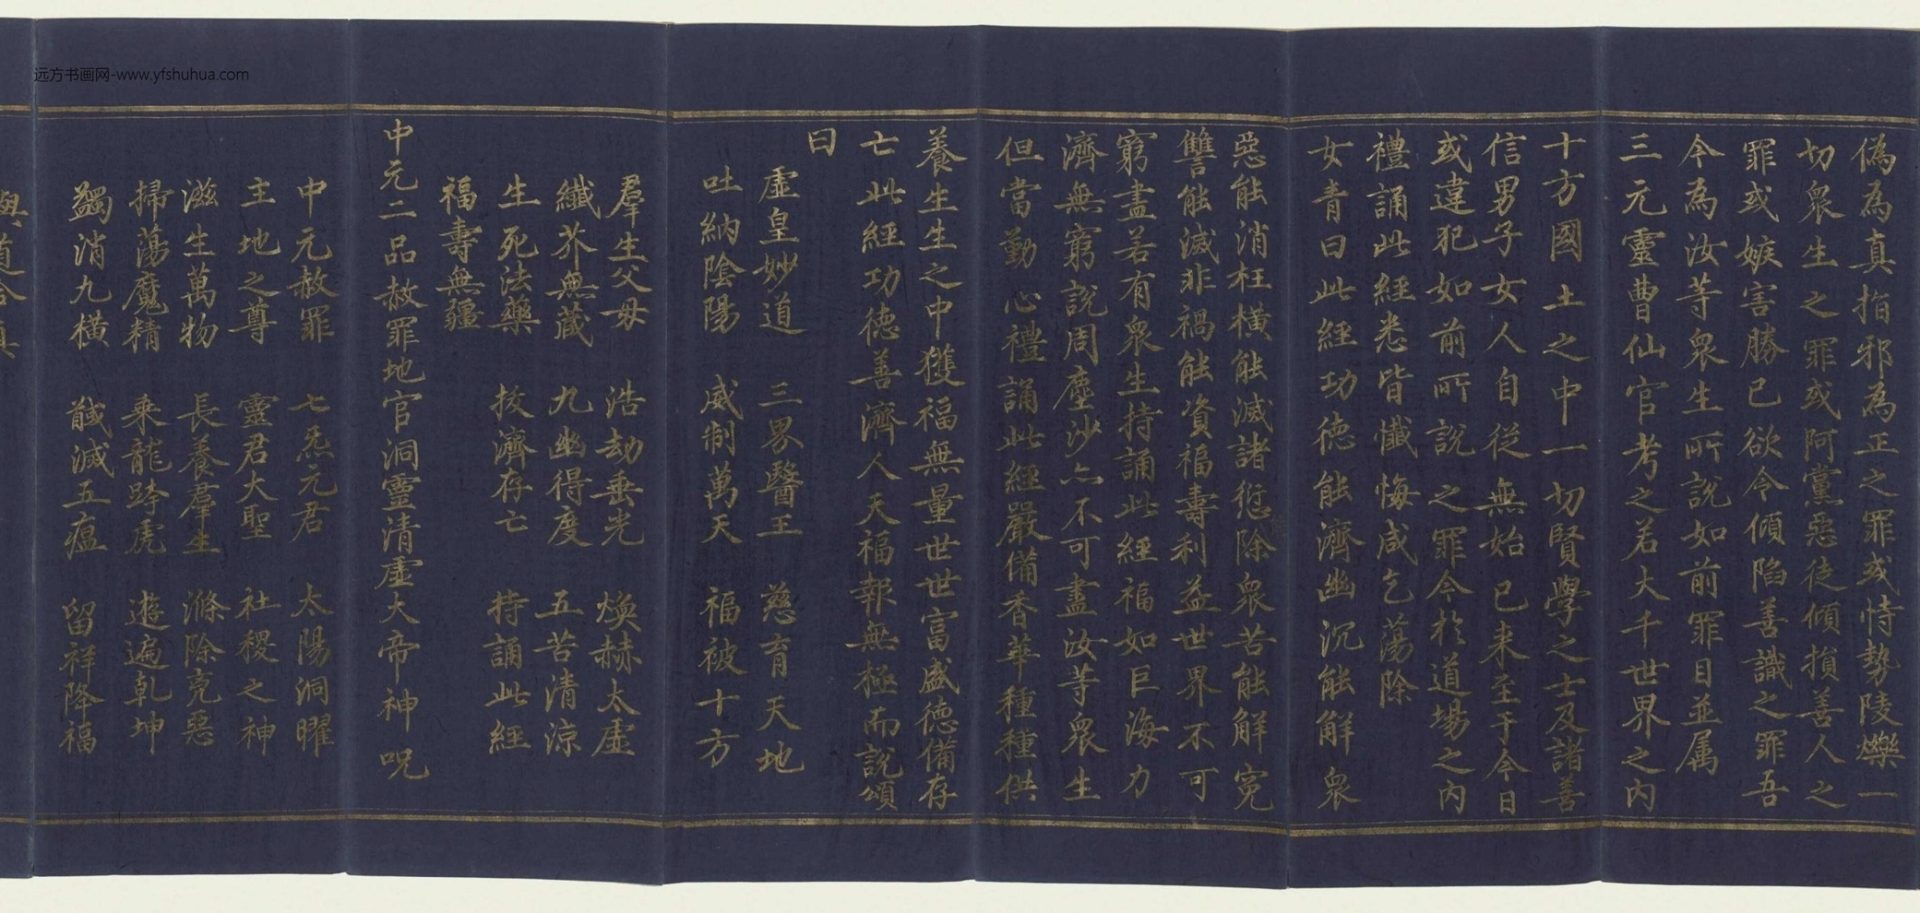 偽為真指邪為正之罪或恃勢陵爍一
切衆生之罪或阿黨惡徒傾損善人之
罪或嫉害勝已欲令傾陷善識之罪吾
今為汝等衆生所說如前罪目並属
三元靈曹仙官考之若大千世界之内
十方國土之中一切賢學之士及諸善
信男子女人自從無始已来至于今日
或違犯如前所說之罪今於道場之内
禮誦此經悉皆懺悔咸乞蕩除
女青曰此經功徳能濟幽沉能解衆
惡能消枉横能滅諸愆除衆苦能解寃
讐能滅非禍能資福壽利益世界不可
窮盡若有衆生持誦此經福如巨海力
濟無窮說周塵沙亦不可盡汝等衆生
但當勤心禮誦此經嚴備香華種種供
養生生之中獲福無量世世富盛德備存
亡此經功德善濟人天福報無極而說頌
曰
虛皇妙道 三界醫王 慈育天地
吐納陰陽 威制萬天 福被十方
羣生父母 浩劫垂光 煥赫太虛
纖芥無蔵 九幽得度 五苦清涼
生死法藥 拔濟存亡 持誦此經
福壽無疆
中元二品赦罪地官洞靈清虛大帝神呪
中元赦罪 七炁元君 太陽洞曜
主地之尊 靈君大聖 社稷之神
滋生萬物 長養羣生 滌除兇惡
掃蕩魔精 乘龍跨虎 遊遍乾坤
蠲消九横 馘滅五瘟 留祥降福
與道合真
远方书画网-www.yfshuhua.com